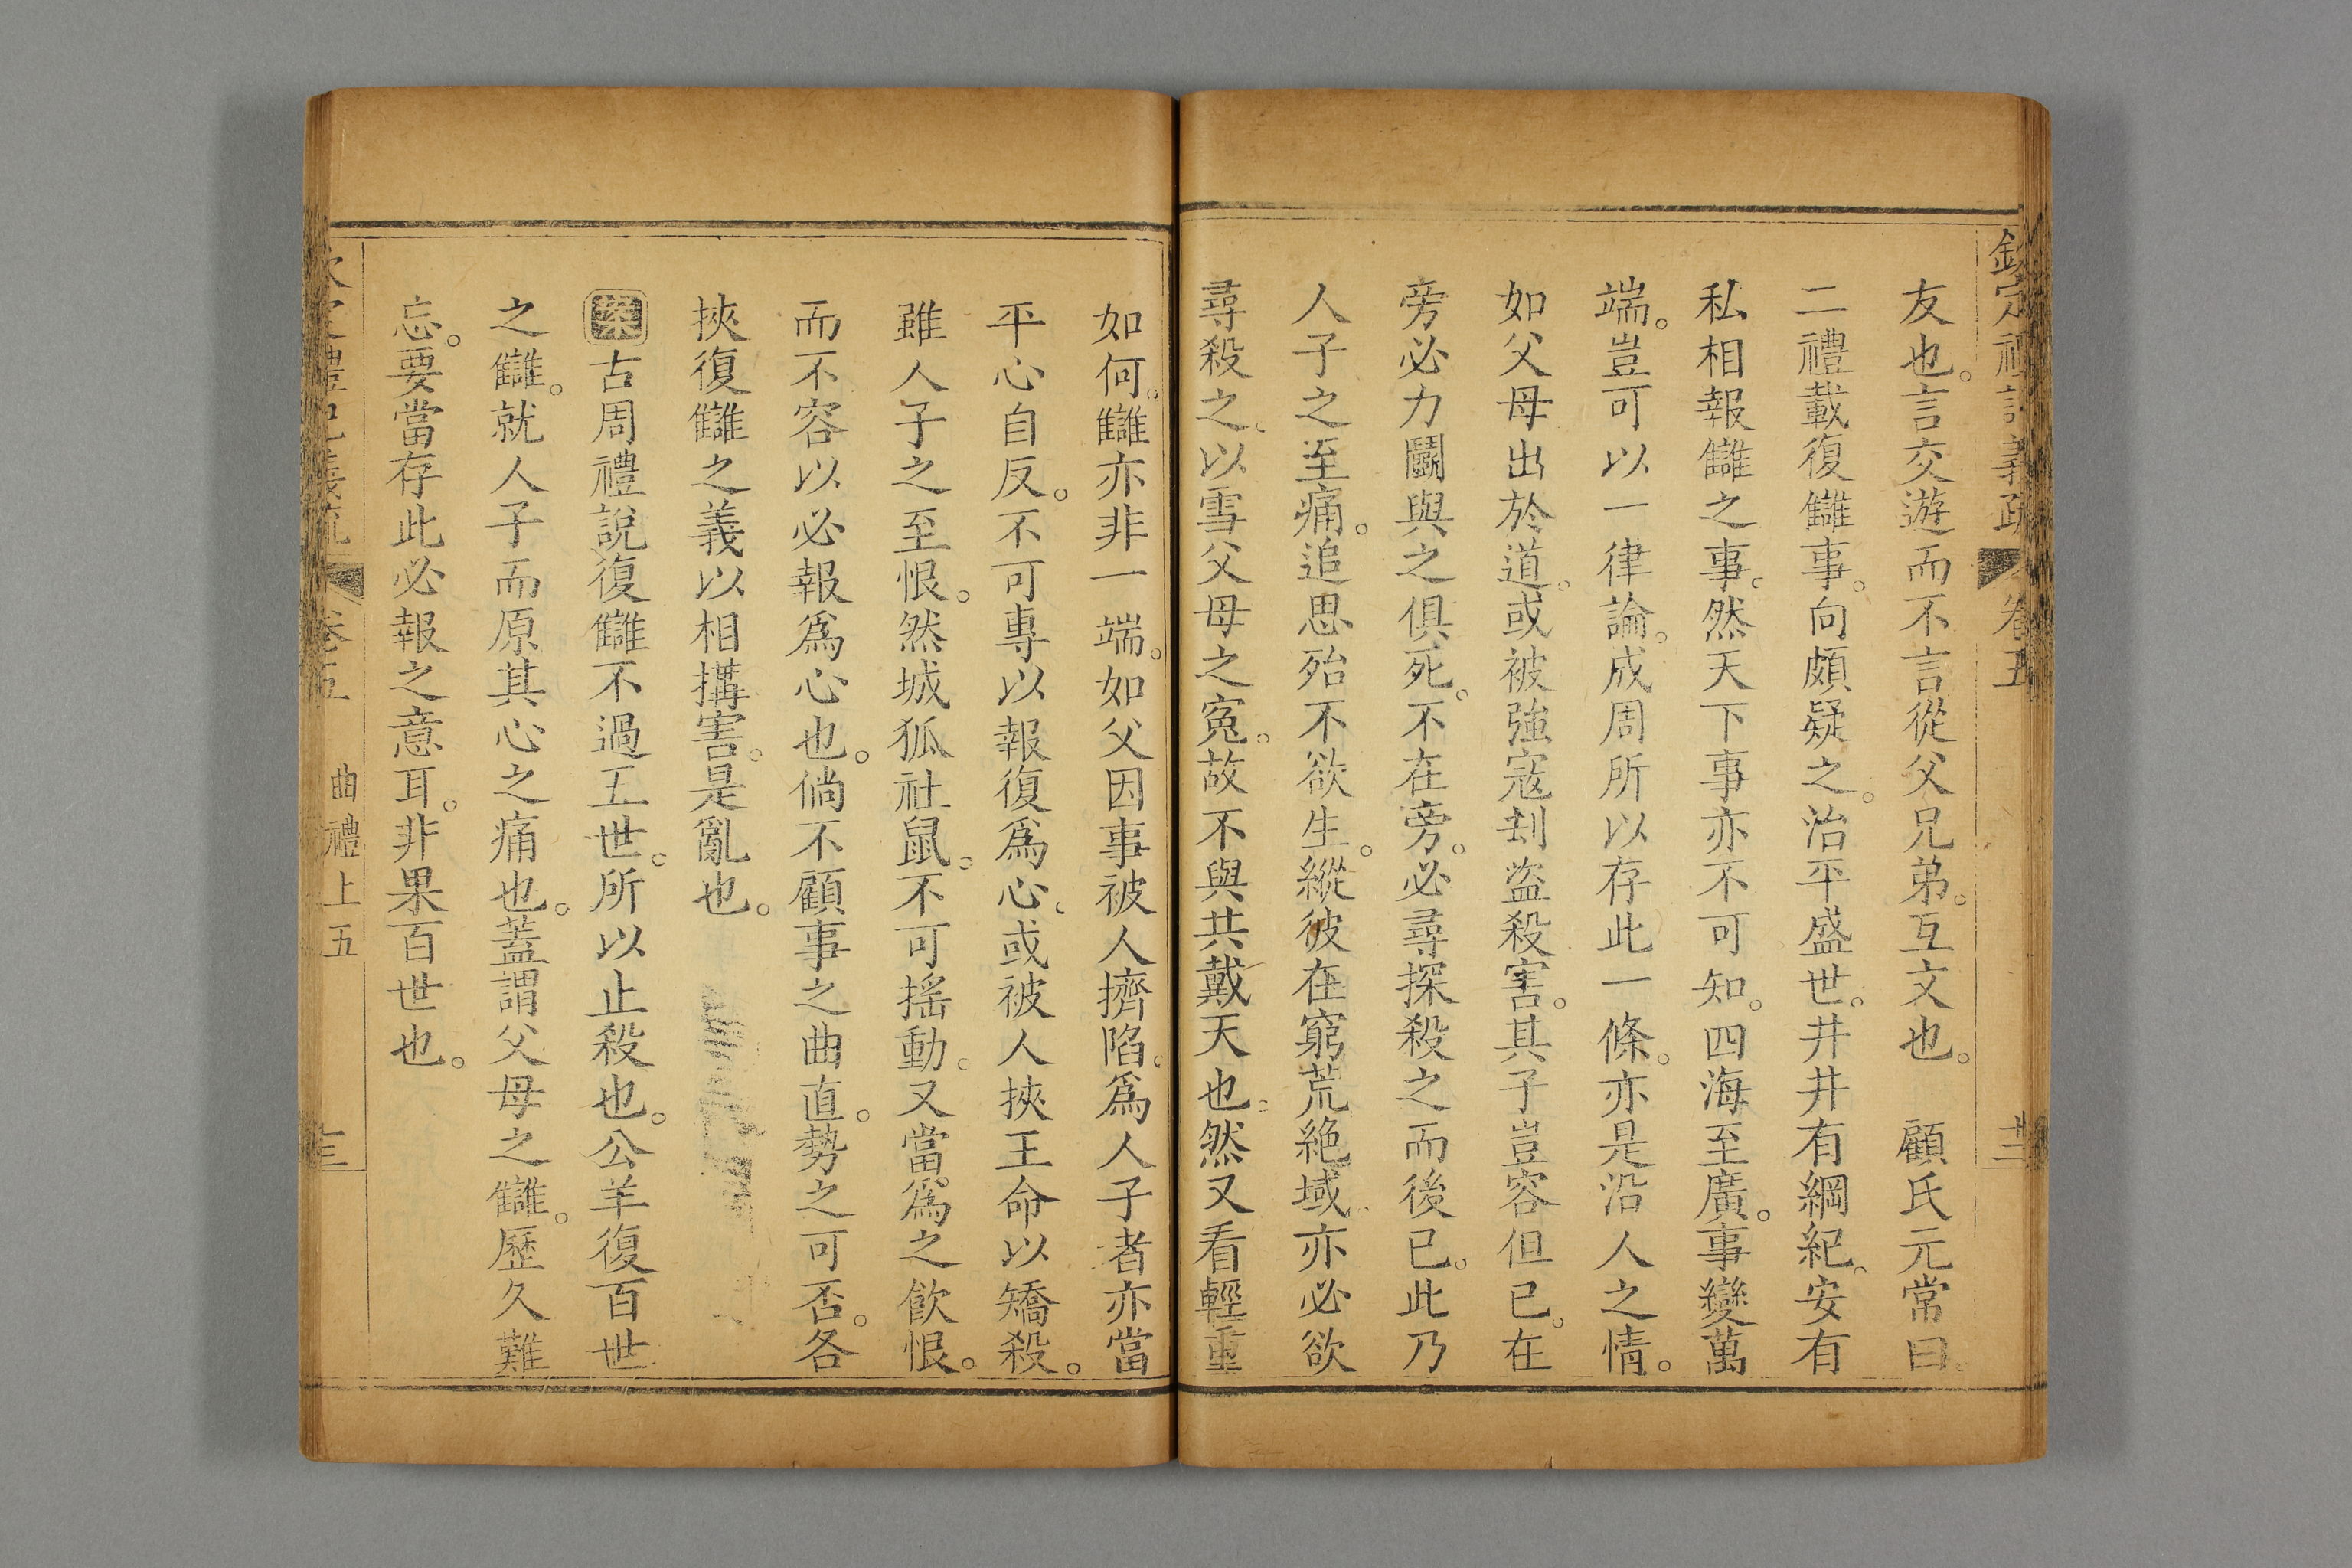 欽定禮記義疏 卷五
友也。言交遊而不言從父兄弟。互文也。 顧氏元常曰。
二禮載復讎事。向頗疑之。治平盛世。井井有綱紀。安有
私相報讎之事。然天下事亦不可知。四海至廣。事變萬
端。豈可以一律論。成周所以存此一條。亦是沿人之情。
如父母出於道。或被強寇刦盜殺害。其子豈容但已。在
旁必力鬭與之俱死。不在旁。必尋探殺之而後已。此乃
人子之至痛。追思殆不欲生。縱彼在窮荒絶域。亦必欲
尋殺之。以雪父母之寃。故不與共戴天也。然又看輕重
如何。讎亦非一端。如父因事被人擠陷。爲人子者亦當
平心自反。不可專以報復爲心。或被人挾王命以矯殺。
雖人子之至恨。然城狐社鼠。不可搖動。又當爲之飲恨。
而不容以必報爲心也。倘不顧事之曲直。勢之可否。各
挾復讎之義以相搆害。是亂也。
案古周禮說復讎不過五世。所以止殺也。公羊復百世
之讎。就人子而原其心之痛也。蓋謂父母之讎。歷久難
忘。要當存此必報之意耳。非果百世也。
卷五 曲禮上五